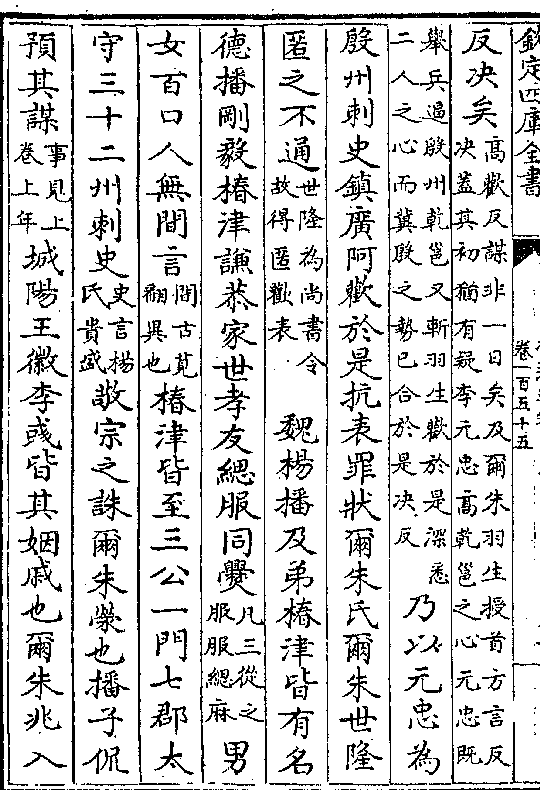 欽定四庫全書
卷一百五十五
反决矣高歡反謀非一日矣及爾朱羽生授首方言反决盖其初猶有疑李元忠高乾邕之心元忠既
舉兵逼殷州乾邕又斬羽生歡於是深悉二人之心而冀殷之勢已合於是决反乃以元忠為
殷州刺史鎮廣阿歡於是抗表罪狀爾朱氏爾朱世隆
匿之不通世隆為尚書令故得匿歡表 魏楊播及弟椿津皆有名
德播剛毅椿津謙恭家世孝友緦服同㸑凡三從之服服緦麻男
女百口人無間言間古莧翻異也椿津皆至三公一門七郡太
守三十二州刺史史言楊氏貴盛敬宗之誅爾朱榮也播子侃
預其謀事見上卷上年城陽王徽李彧皆其姻戚也爾朱兆入